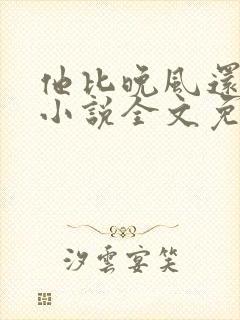 他比晚風還
小說全文免
汐雲宴笑